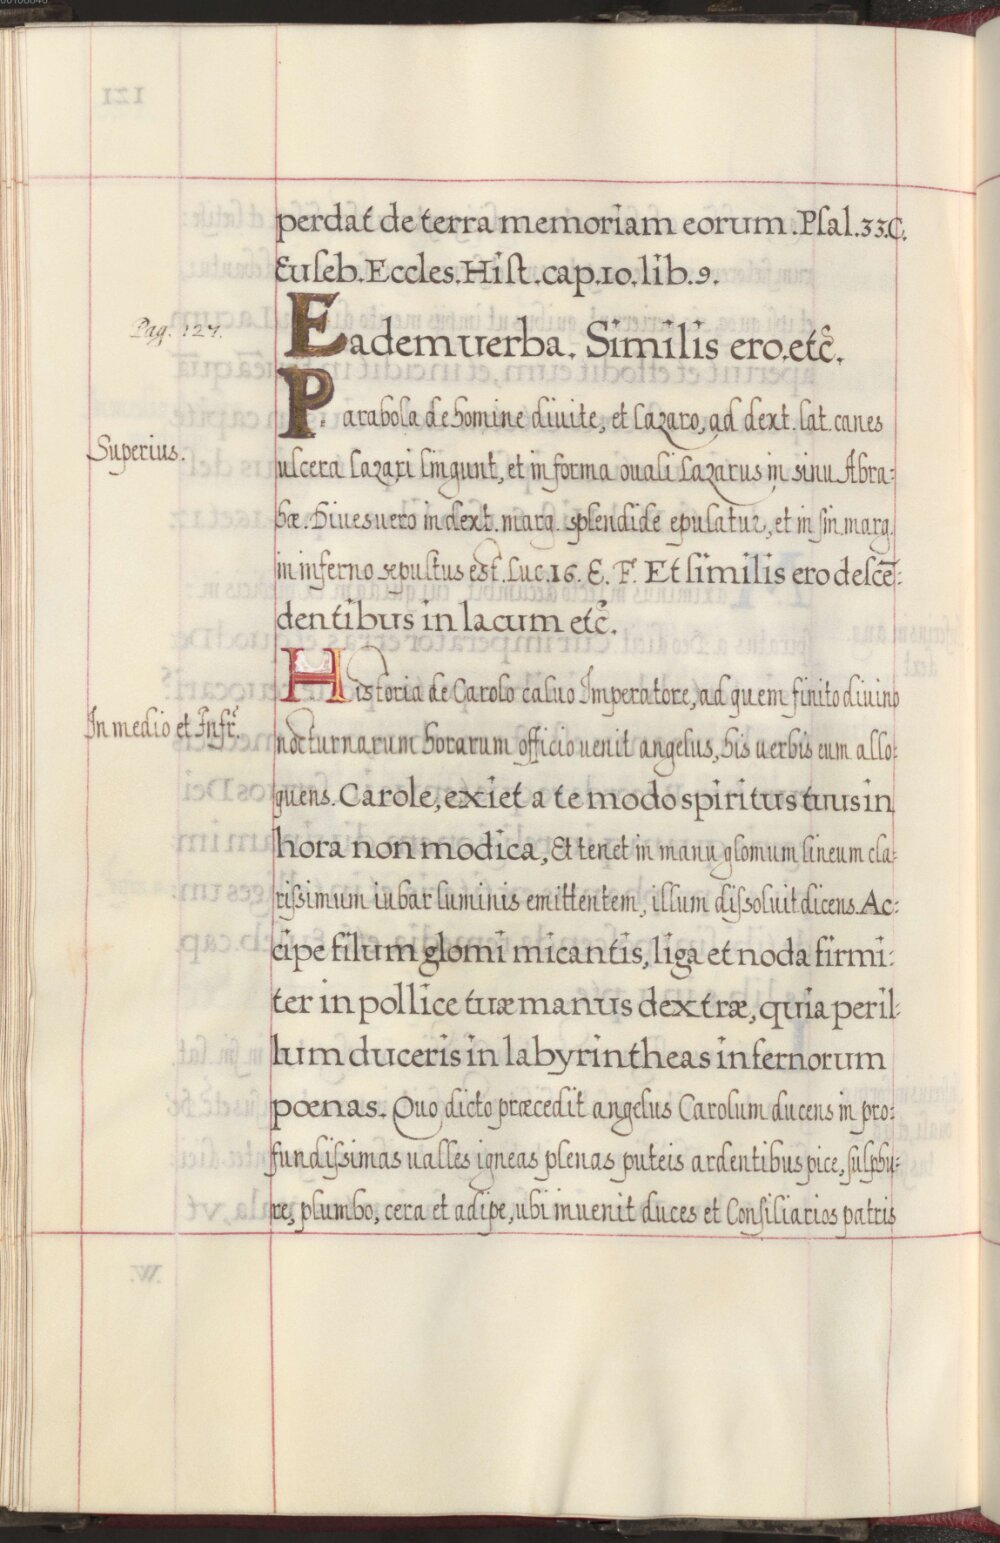 perdat de terra memoriam eorum. Psal. 33. C.
Euseb. Eccles. Hist. cap. 10. lib. 9.
Pag. 127.
Eadem verba. Similis ero. etc̄.
Parabola de homine diuite, et Lazaro, ad dext. lat. canes
Superius.
ulcera Lazari lingunt, et in forma ouali Lazarus in sinu Abra-
hæ. Diues uero in dext. marg. splendide epulatur, et in sin. marg.
in inferno sepultus est. Luc. 16. E. F. Et similis ero descē-
dentibus in lacum etc̄.
Historia de Carolo caluo Imperatore, ad quem finito diuino
In medio et Infr̄.
nocturnarum horarum officio uenit angelus, his uerbis eum allo-
quens. Carole, exiet a te modo spiritus tuus in
hora non modica, Et tenet in manu glomum lineum cla-
rissimum iubar luminis emittentem, illum dissoluit dicens. Ac-
cipe filum glomi micantis, liga et noda firmi-
ter in pollice tuæ manus dextræ, quia per il-
lum duceris in labyrintheas infernorum
pœnas. Quo dicto præcedit angelus Carolum ducens in pro-
fundissimas ualles igneas plenas puteis ardentibus pice, sulphu-
re, plumbo, cera et adipe, ubi inuenit duces et Consiliarios patris